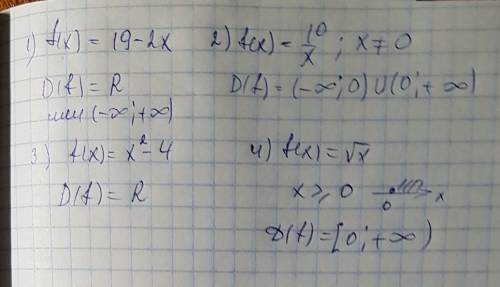 1) f(x) = 19-2x
D(f) = R
или (-∞; +∞)
2) f(x) = 10/x ; x ≠ 0
D(f) = (-∞; 0) U (0; +∞)
3) f(x) = x² - 4
D(f) = R
4) f(x) = √x
x ⩾ 0
0 x
D(f) = [0; +∞)